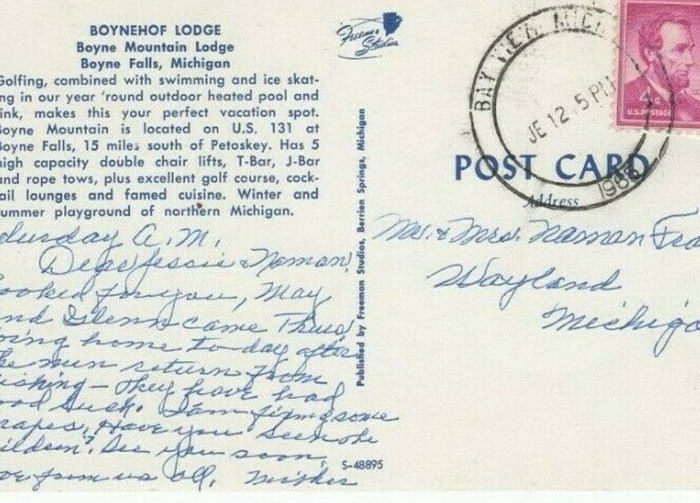 BOYNEHOF LODGE
Boyne Mountain Lodge
Boyne Falls, Michigan
Golfing, combined with swimming and ice skat-
ng in our year 'round outdoor heated pool and
ink, makes this your perfect vacation spot.
Boyne Mountain is located on U.S. 131 at
Boyne Falls, 15 miles south of Petoskey. Has 5
high capacity double chair lifts, T-Bar, J-Bar
and rope tows, plus excellent golf course, cock-
ail lounges and famed cuisine. Winter and
ummer playground of northern Michigan.
turday A.M.
Dear Jessie & Naman,
ooked for you, May
nd Glenn came Thurs
oing home to-day after
he men return from
ishing — They have had
ood luck. I am fixing some
rapes, Have you seen the
ildren? See you soon,
ove from us all,
Freeman Studios
Published by Freeman Studios, Berrien Springs, Michigan
S-48895
BAY VIEW, MICH
JE 12 5 PM
U.S. POSTAGE
POST CARD
Address
Mr. & Mrs. Naman
Wayland
Michiga